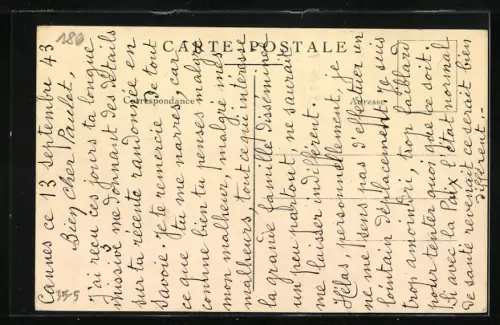 180
CARTE POSTALE
Correspondance
Adresse
Cannes ce 13 Septembre 43
Bien Cher Paulet,
J'ai reçu ces jours ta longue
missive me donnant des détails
sur ta récente randonnée en
Savoie. Je te remercie de tout
ce que tu me narres, car
comme bien tu penses malgré
mon malheur, malgré mes
malheurs, tout ce qui intéresse
la grande famille disséminée
un peu partout, ne saurait
me laisser indifférent.
Hélas, personnellement, je
ne me sens pas d'effectuer un
lointain déplacement. Je suis
trop amoindri, trop faiblard
pour tenter quoi que ce soit.
Si avec la Paix l'état normal
de santé revenait ce serait bien
différent.-
35-5